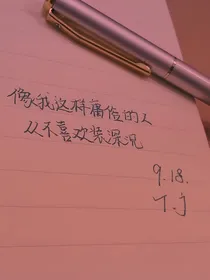 像我这样痛俗的人
从不喜欢装深沉
9.18.
T.j